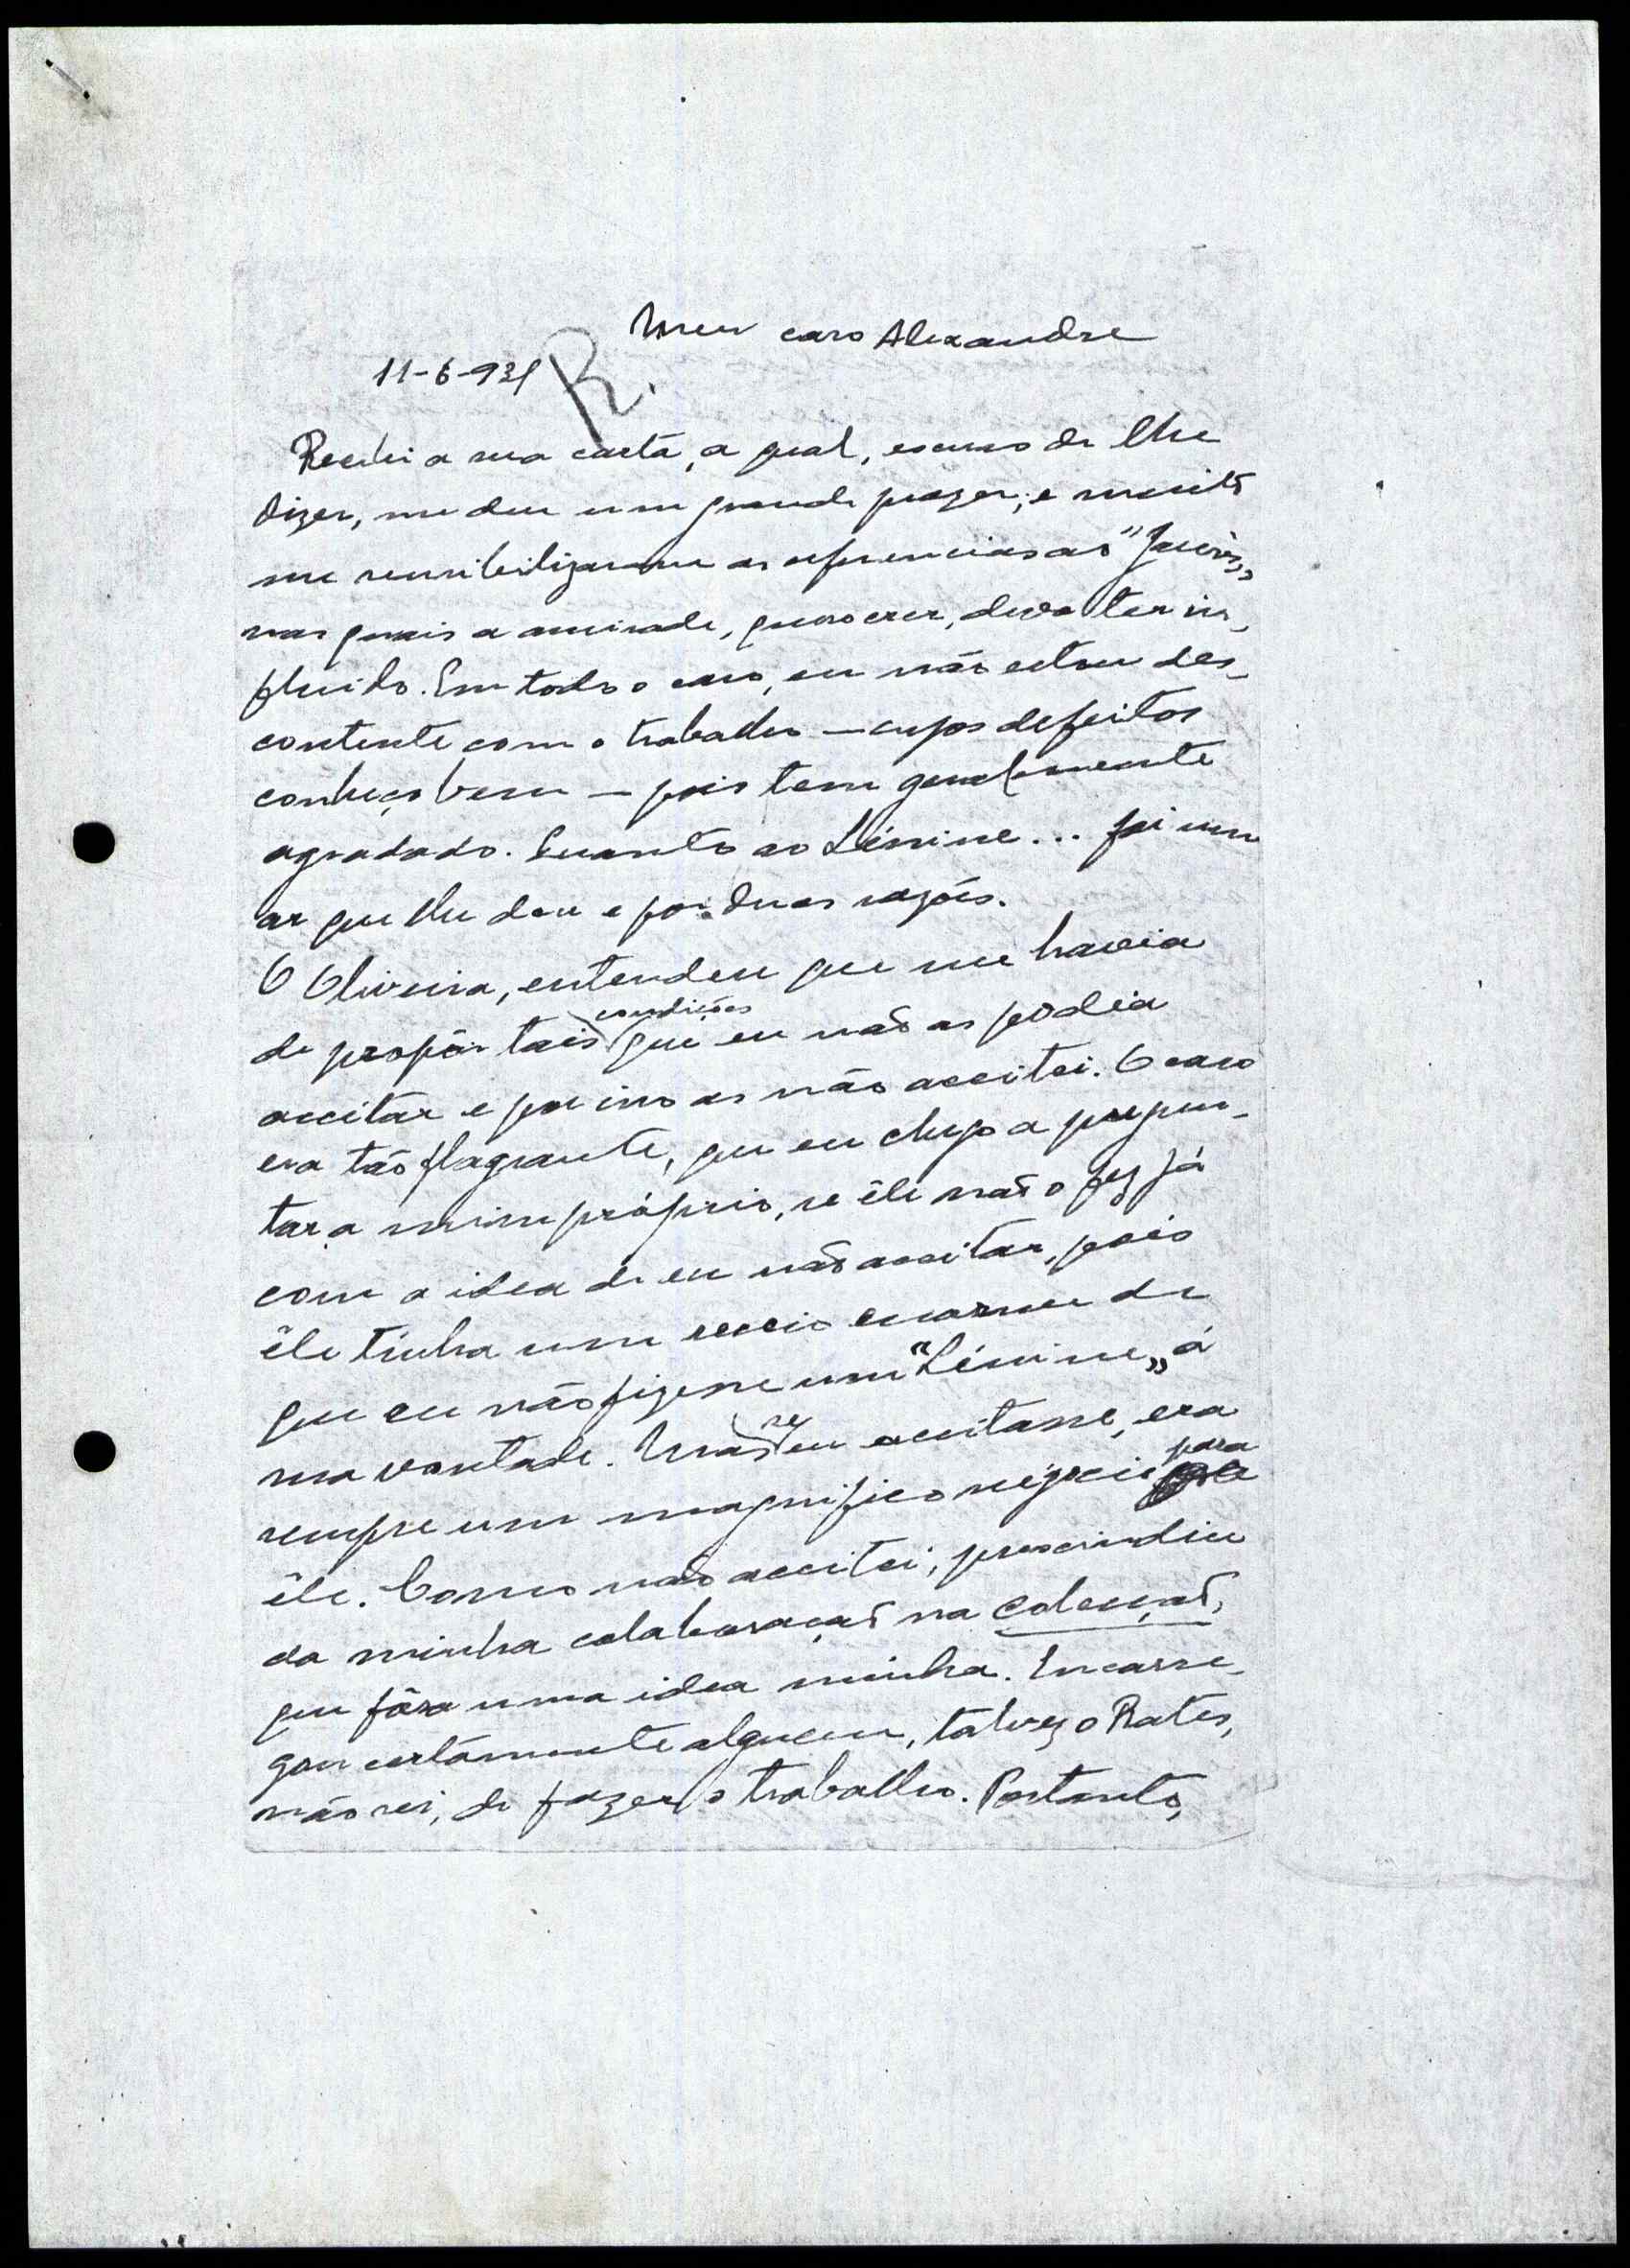 Meu caro Alexandre
11-6-931
R.
Recebi a sua carta, a qual, escuso de lhe
dizer, me deu um grande prazer; e muito
me sensibilizaram as referencias ao "Jaurès,,
nas quais a amisade, quero crer, deve ter in-
fluido. Em todo o caso, eu não estou des-
contente com o trabalho — cujos defeitos
conheço bem — pois tem geralmente
agradado. Quanto ao Lénine... foi um
ar que lhe deu e por duas razões.
O Oliveira, entendeu que me havia
de propôr tais condições que eu não as podia
aceitar e por isso as não aceitei. O caso
era tão flagrante, que eu chego a pregun-
tar a mim próprio, se êle não o fez já
com a idea de eu não aceitar, pois
êle tinha um receio enorme de
que eu não fizesse um "Lénine,, á
sua vontade. Mas se eu aceitasse, era
sempre um magnifico négocio para
êle. Como não aceitei, prescindiu
da minha colaboração na coleção,
que fôra uma idea minha. Encarre-
gou certamente alguem, talvez o Rates,
não sei, de fazer o trabalho. Portanto,